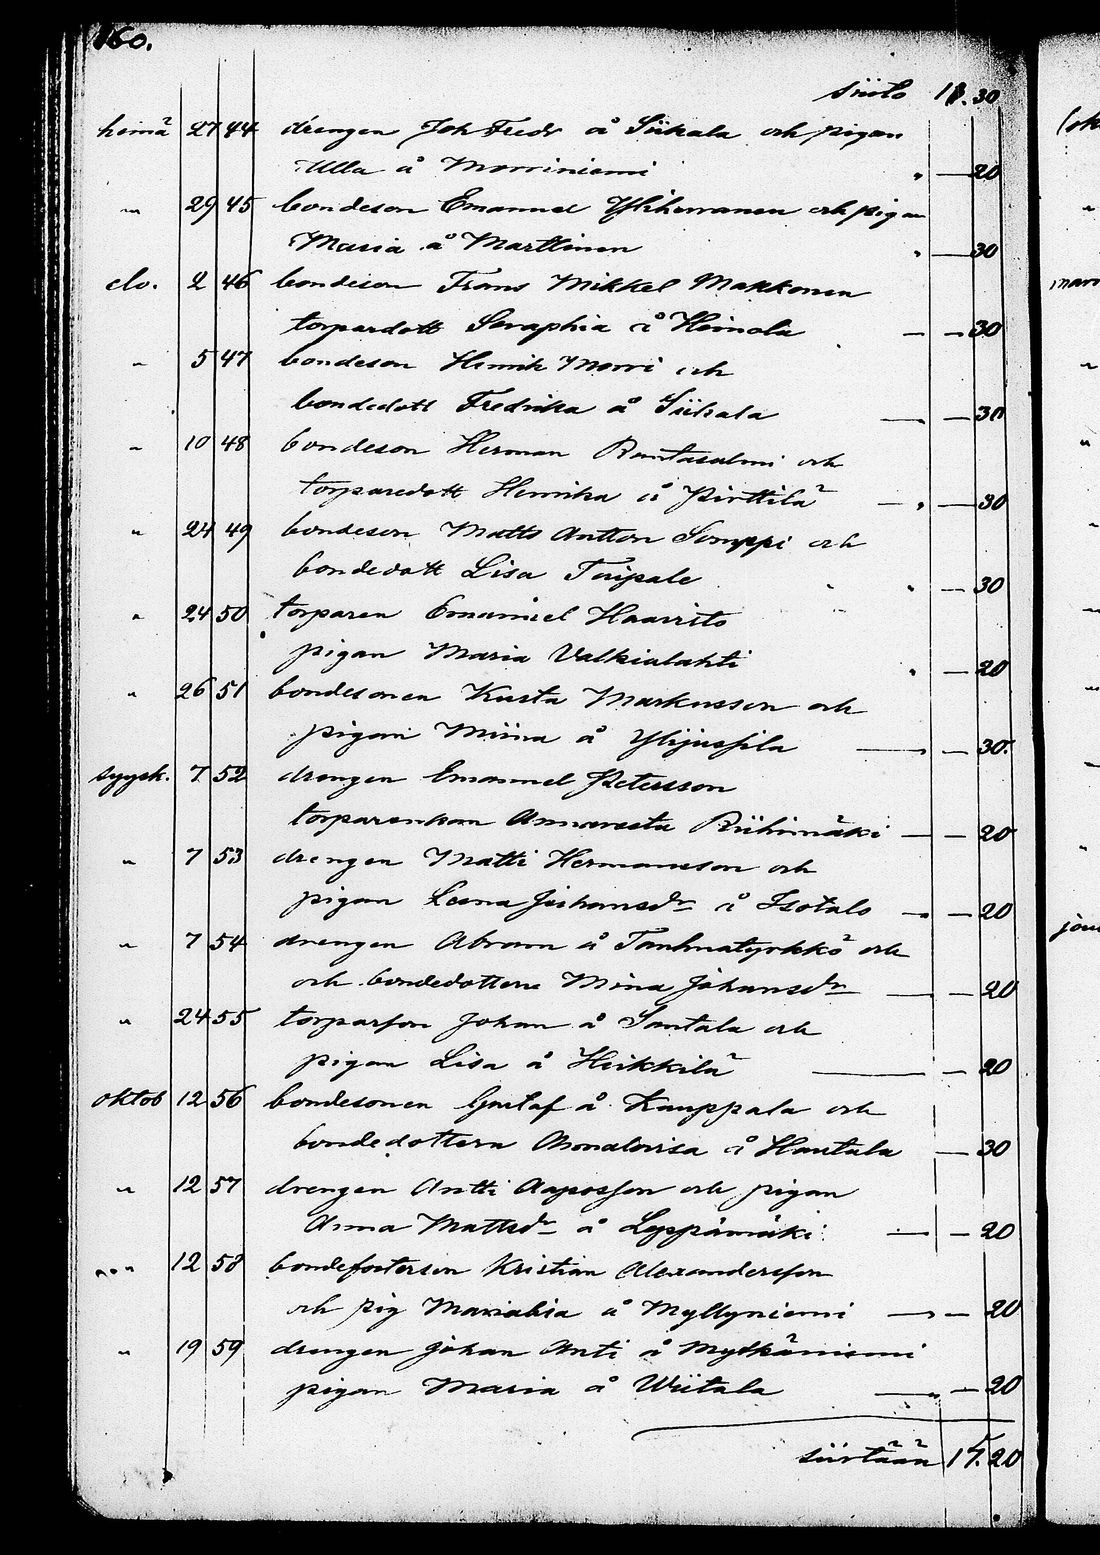 160.
siirto 11.30
heinä 27 44 drengen Joh Fredr å Siikala och pigan
Ulla å Morriniemi " — 20
" 29 45 bondeson Emanuel Yliherranen och pigan
Maria å Marttinen " — 30
elo. 2 46 bondeson Frans Mikkel Makkonen
torpardott Seraphia å Heinola — — 30
" 5 47 bondeson Henrik Morri och
bondedott Fredrika å Siikala — — 30
" 10 48 bondeson Herman Rantasalmi och
torparedott Henrika å Pirttilä — " — 30
" 24 49 bondeson Matts Antton Somppi och
bondedott Lisa Taipale " " — 30
" 24 50 torparen Emanuel Haavisto
pigan Maria Valkialahti " — 20
" 26 51 bondesonen Kusta Markusson och
pigan Miina å Ylijussila — — 30.
syysk. 7 52 drengen Emanuel Petersson
torparenkan Annavesta Riihimäki — — 20
" 7 53 drengen Matti Hermansson och
pigan Leena Johansdr å Isotalo — — 20
" 7 54 drengen Abram å Tanhuatyrkkö och
och bondedottern Mina Johansdr — — 20
" 24 55 torparson Johan å Santala och
pigan Lisa å Heikkilä — — 20
oktob 12 56 bondesonen Gustaf å Kauppala och
bondedottern Annalovisa å Hautala — 30
" 12 57 drengen Antti Aaposson och pigan
Anna Mattsdr å Leppämäki — — 20
" " 12 58 bondefosterson Kristian Alexandersson
och pig Marialisa å Myllyniemi — — 20
" 19 59 drengen Johan Anti å Mytkäniemi
pigan Maria å Wiitala — — 20
siirtään 15.20